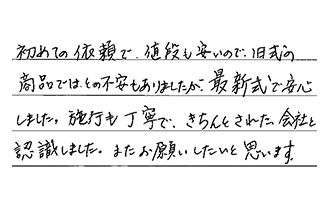 初めての依頼で、値段も安いので、旧式の
商品では、その不安もありましたが、最新式で安心
しました。施行も丁寧で、きちんとされた会社と
認識しました。またお願いしたいと思います。